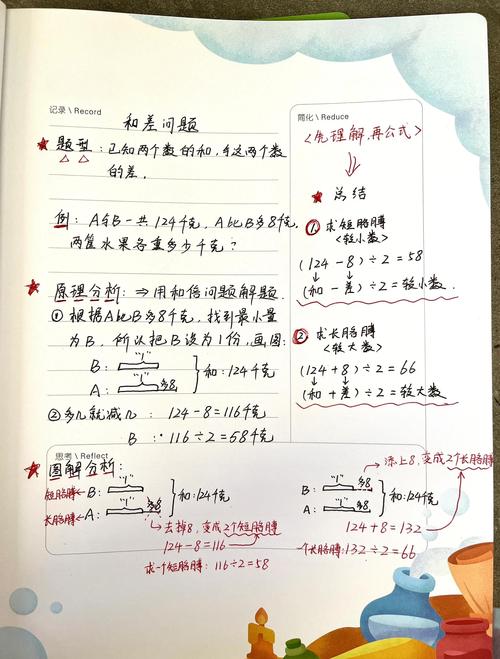 记录\Record
和差问题
★ 题型：已知两个数的和，与这两个数
的差.
例：A与B一共124千克，A比B多8千克，
两筐水果各重多少千克？
★ 原理分析：⇒用和倍问题解题.
① 根据A比B多8千克，找到最小量
为B，所以把B设为1份，画图：
B： "1"
A： "1" 多8
和：124千克
② 多几就减几： 124-8=116千克
B：116÷2=58千克
简化\Reduce
<先理解，再公式>
★ 总结
① 求短胳膊
<较小数>
(124-8)÷2=58
(和-差)÷2=较小数.
② 求长胳膊
<较大数>
(124+8)÷2=66
(和+差)÷2=较大数
思考\Reflect
★ 图解分析：
短胳膊← B： "1"
长胳膊← A： "1" 多8
和：124千克
→去掉8，变成2个短胳膊
124-8=116
求一个短胳膊：116÷2=58
→添上8，变成2个长胳膊
B： "1" 多8
A： "1" 多8
和：124千克
124+8=132
一个长胳膊：132÷2=66